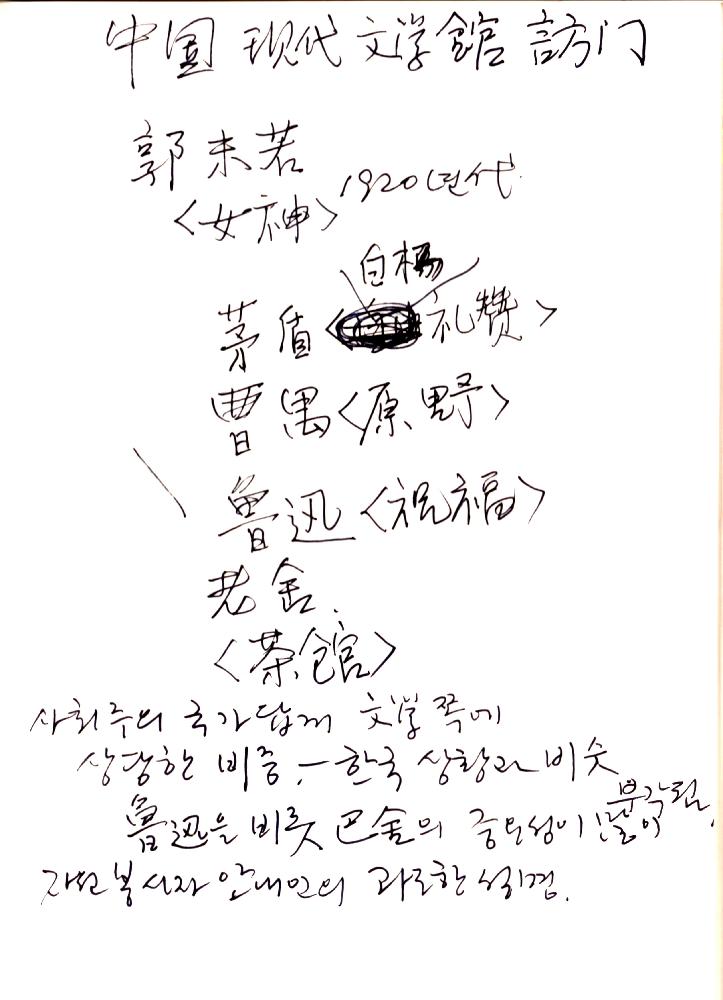 中国 现代 文学館 訪门
郭末若
<女神> 1920년代
白楊
茅盾< 礼赞>
曹禺<原野>
魯迅<祝福>
老舍.
<茶館>
사회주의 국가답게 文学쪽에
상당한 비중. – 한국 상황과 비슷
부각됨,
魯迅을 비롯 巴舍의 중요성이 많이
자원봉사자 안내인의 과도한 친절.